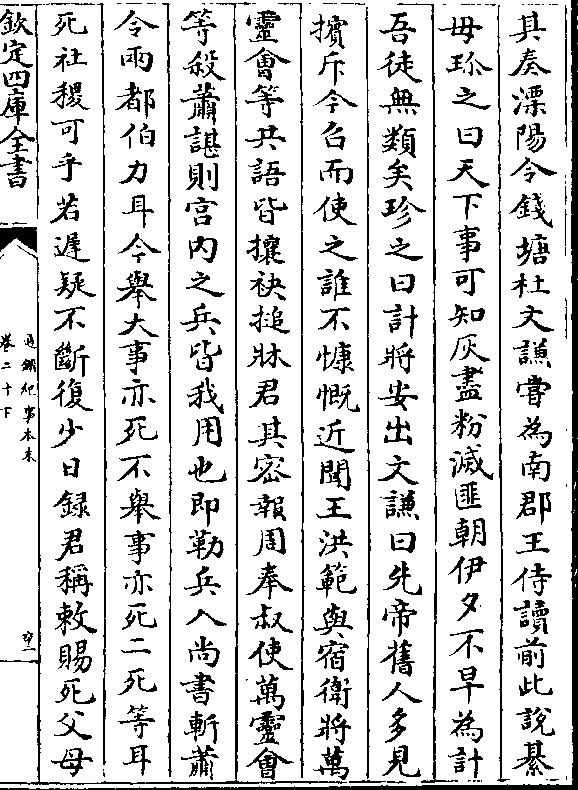 其奏溧陽令錢塘杜文謙嘗為南郡王侍讀前此說綦
母珍之曰天下事可知灰盡粉滅匪朝伊夕不早為計
吾徒無類矣珍之曰計將安出文謙曰先帝舊人多見
擯斥今召而使之誰不慷慨近聞王洪範與宿衛將萬
靈會等共語皆攘袂搥牀君其密報周奉叔使萬靈會
等殺蕭諶則宫内之兵皆我用也即勒兵入尚書斬蕭
令兩都伯力耳今舉大事亦死不舉事亦死二死等耳
死社稷可乎若遲疑不斷復少日録君稱敕賜死父母
欽定四庫全書
通鑑紀事本末
卷二十下